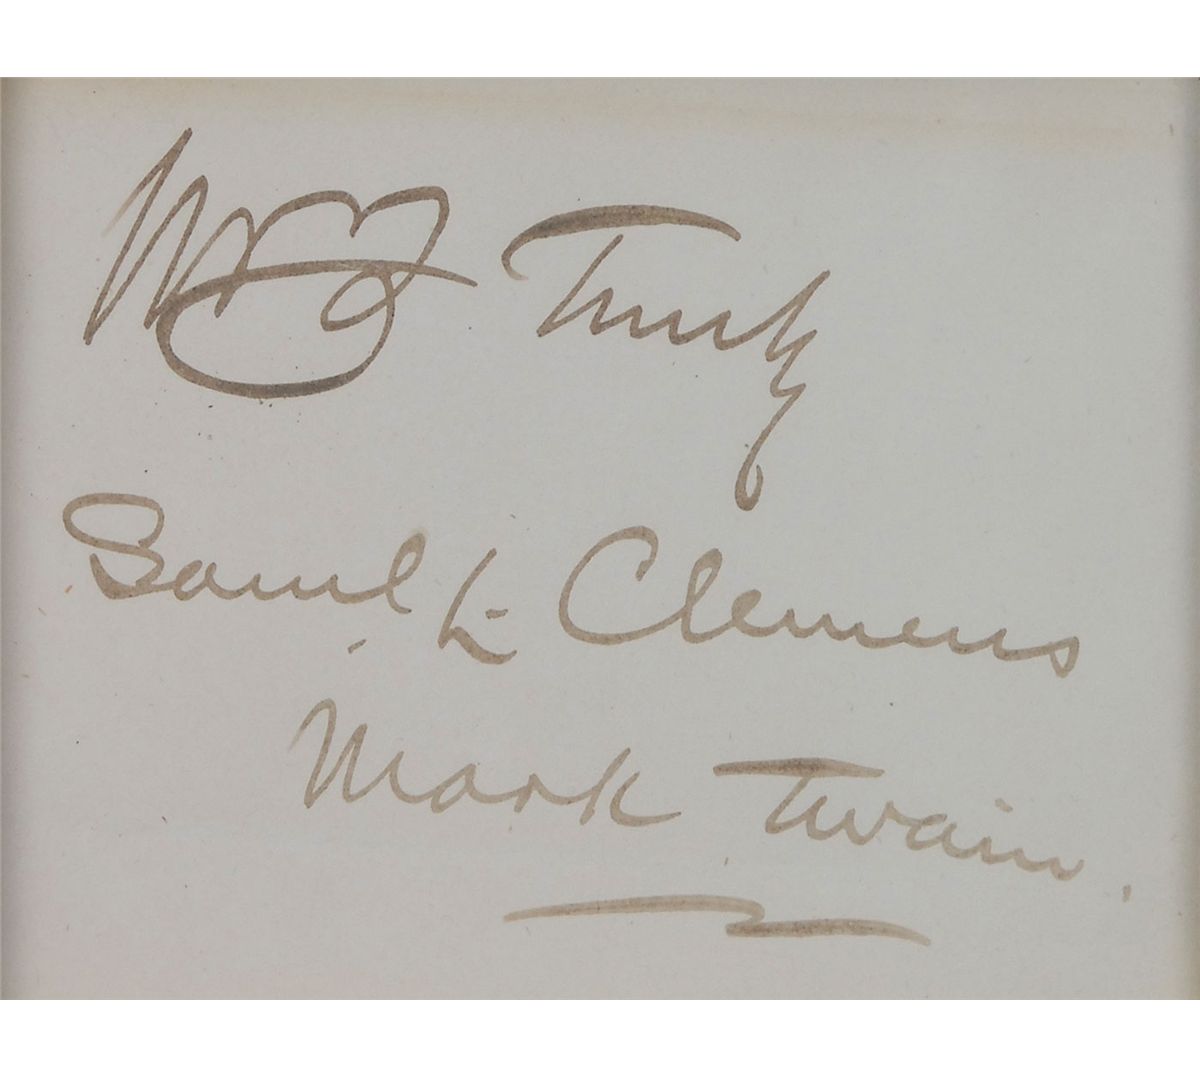 Truly
Saml. L. Clemens
Mark Twain.